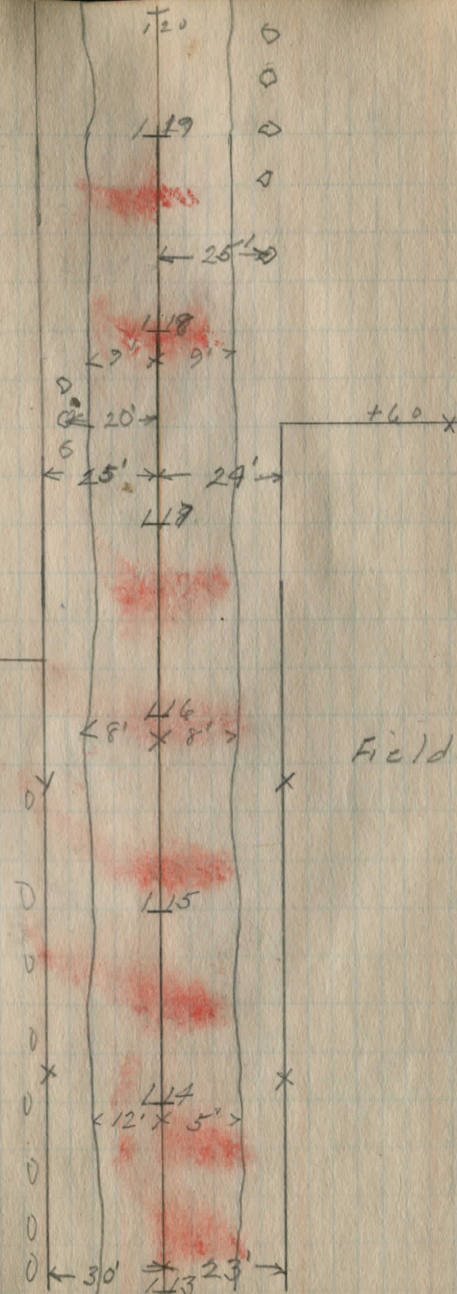 120
119
25'
118
9' 9'
20'
+60
25' 24'
117
116
8' 8'
Field
115
114
12' 5'
30' 23'
113